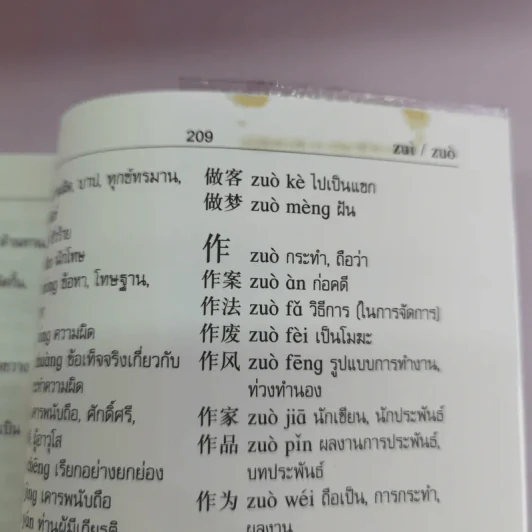 209
zuì / zuò
บาป, ทุกข์ทรมาน,
นักโทษ
ข้อหา, โทษฐาน,
ความผิด
ข้อเท็จจริงเกี่ยวกับ
ศักดิ์ศรี,
ผู้อาวุโส
เรียกอย่างยกย่อง
เคารพนับถือ
ท่านผู้มีเกียรติ
做客 zuò kè ไปเป็นแขก
做梦 zuò mèng ฝัน
作 zuò กระทำ, ถือว่า
作案 zuò àn ก่อคดี
作法 zuò fǎ วิธีการ (ในการจัดการ)
作废 zuò fèi เป็นโมฆะ
作风 zuò fēng รูปแบบการทำงาน,
ท่วงทำนอง
作家 zuò jiā นักเขียน, นักประพันธ์
作品 zuò pǐn ผลงานการประพันธ์,
บทประพันธ์
作为 zuò wéi ถือเป็น, การกระทำ,
ผลงาน